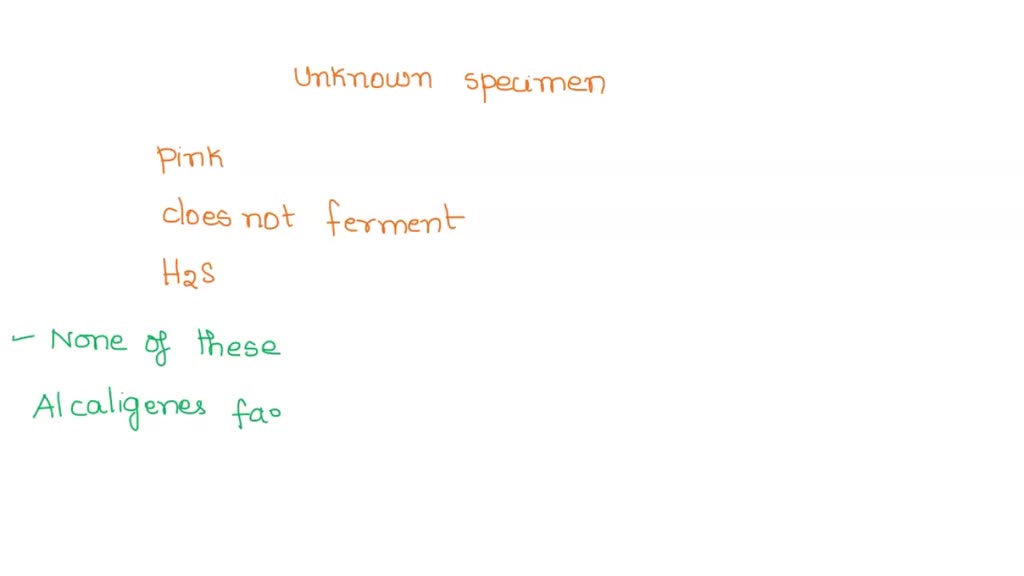 Unknown specimen
Pink
does not ferment
H2S
- None of these
Alcaligenes fae